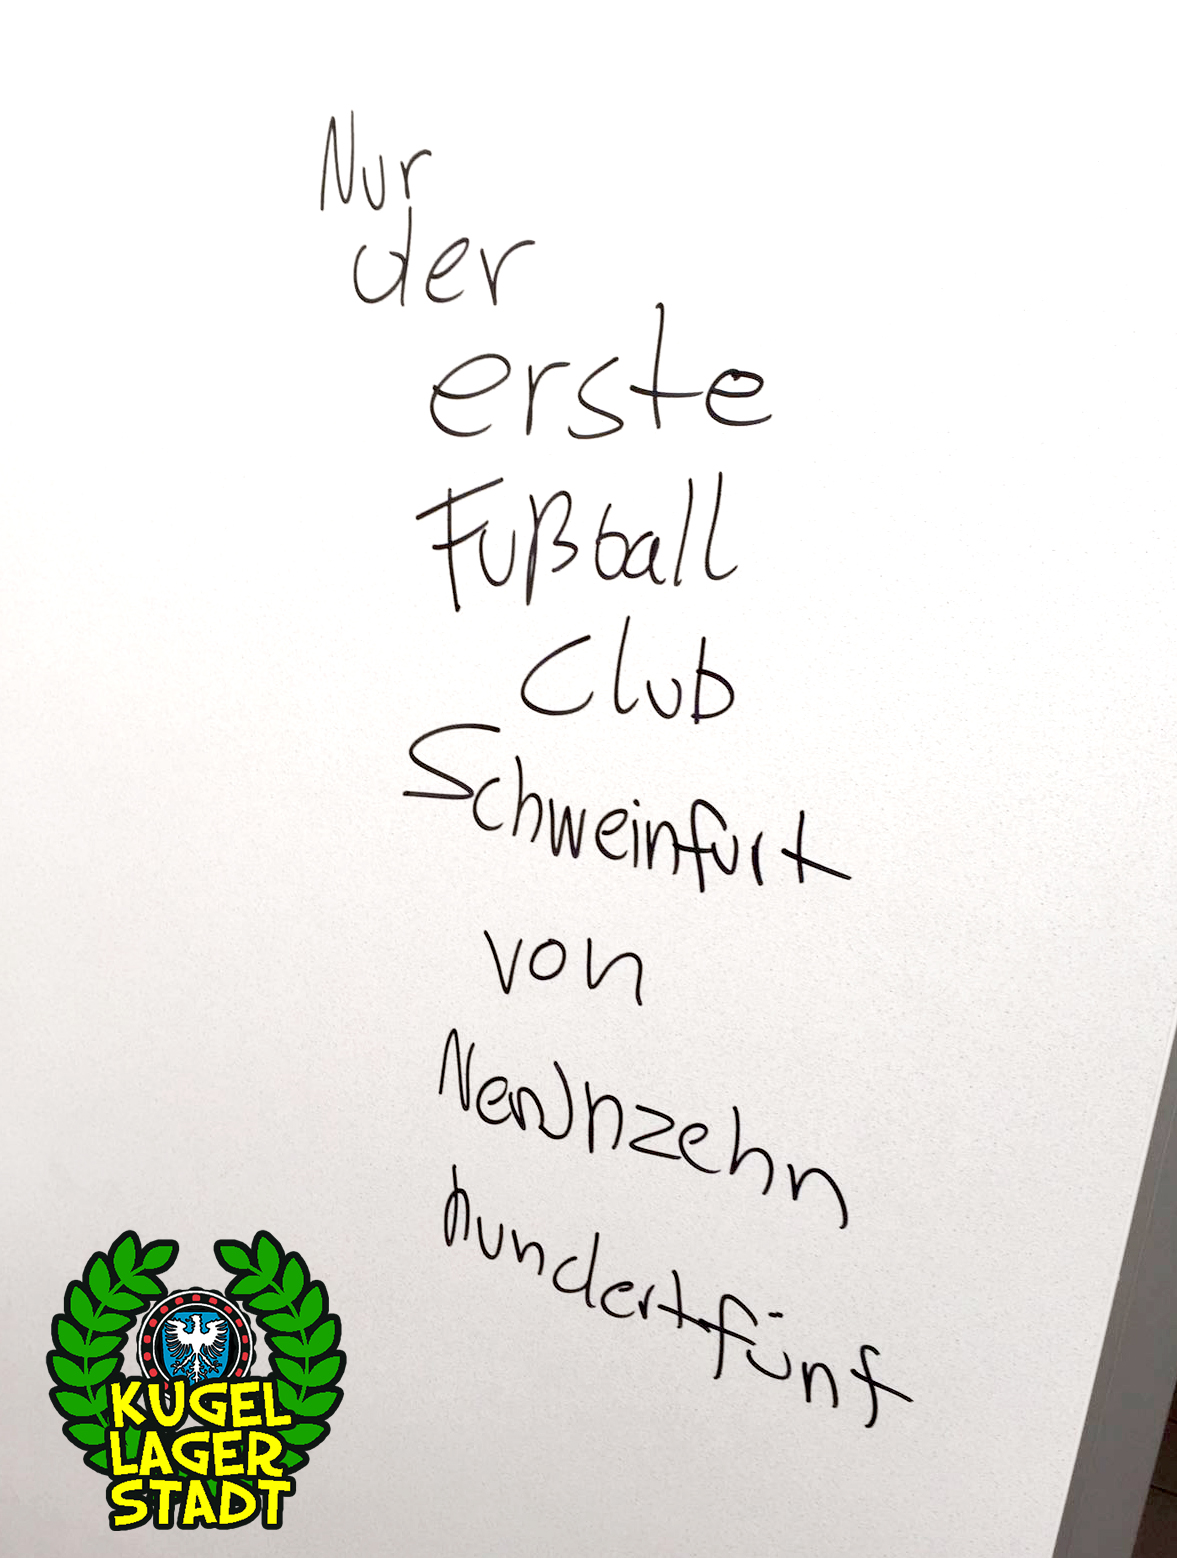 Nur
der
erste
Fußball
Club
Schweinfurt
von
Neunzehn
hundertfünf
KUGEL
LAGER
STADT